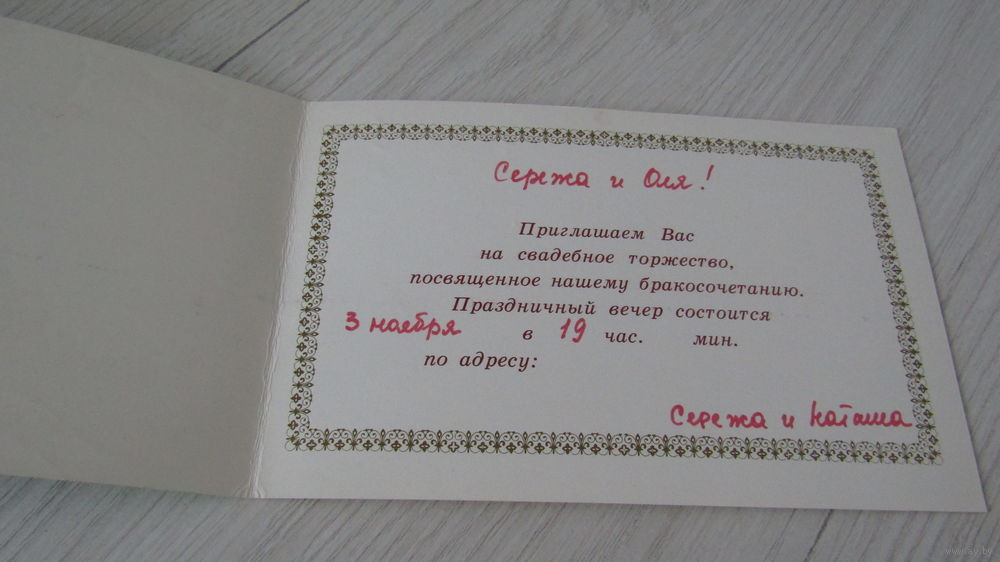 Сережа и Оля!
Приглашаем Вас
на свадебное торжество,
посвященное нашему бракосочетанию.
Праздничный вечер состоится
3 ноября в 19 час. мин.
по адресу:
Сережа и Наташа
www.ay.by